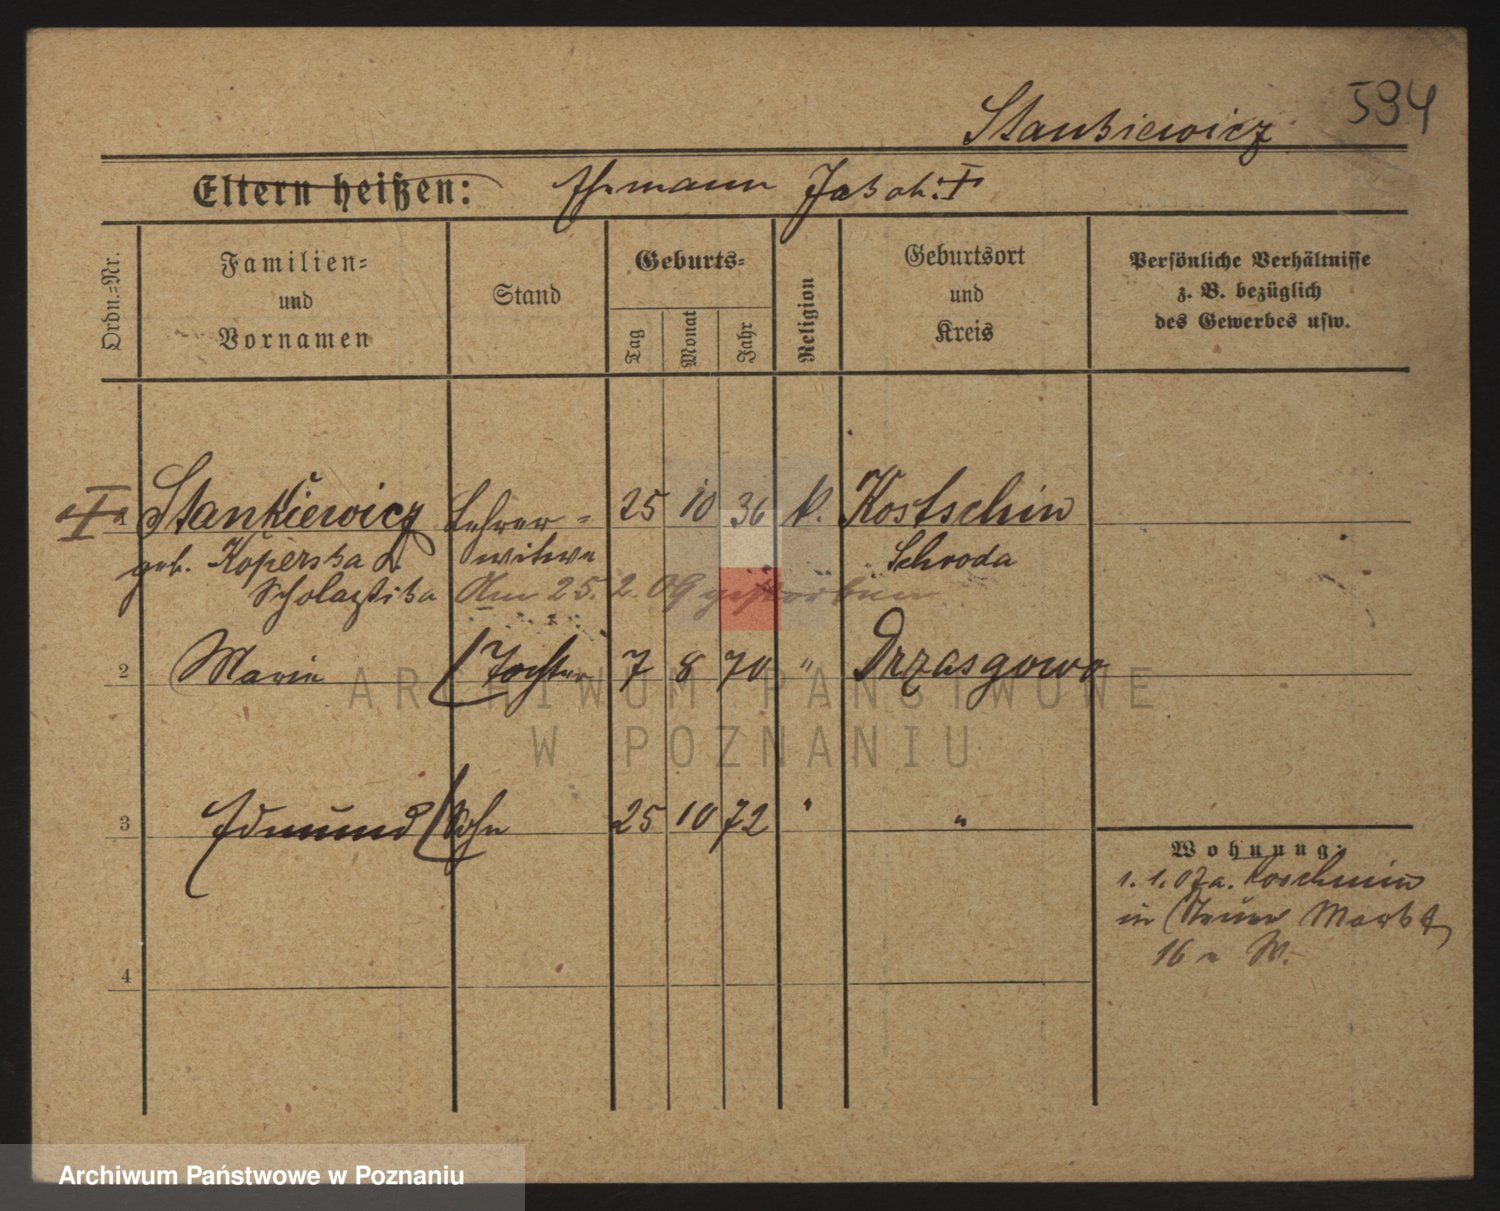 594
Stankiewicz
Eltern heißen: Ehemann Jakob: †
Ordn.-Nr.
Familien-
und
Vornamen
Stand
Geburts-
Tag
Monat
Jahr
Religion
Geburtsort
und
Kreis
Persönliche Verhältnisse
z. B. bezüglich
des Gewerbes usw.
1 Stankiewicz Lehrer- 25 10 36 k. Kostschin
geb. Koperska witwe Schroda
Scholastika Am 25. 2. 09 gestorben
2 Marie Tochter 7 8 70 " Drzasgowo
3 Edmund Sohn 25 10 72 " "
4
Wohnung:
1. 1. 07 a. Koschmin
in Neuer Markt
16 W.
ARCHIWUM PAŃSTWOWE
W POZNANIU
Archiwum Państwowe w Poznaniu